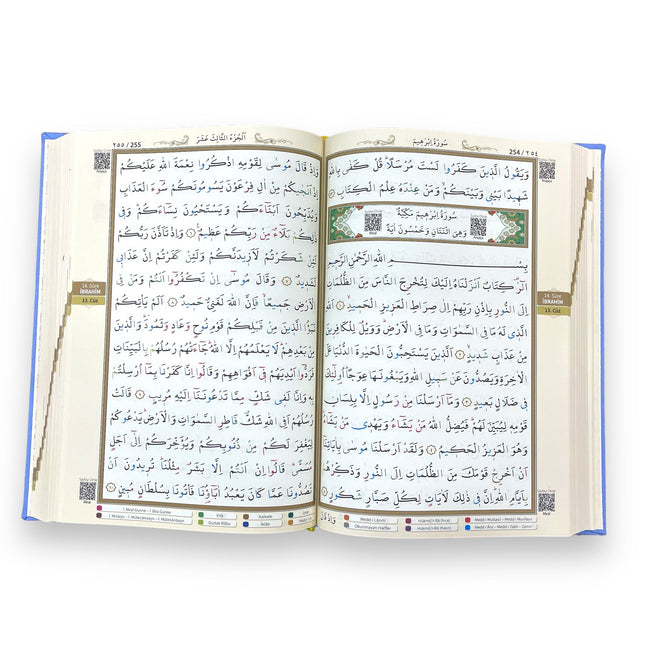 سُورَةُ اِبْرٰهِيمَ
254 / ٢٥٤
وَيَقُولُ الَّذِينَ كَفَرُوا لَسْتَ مُرْسَلاً قُلْ كَفٰى بِاللّٰهِ
شَهِيداً بَيْنِي وَبَيْنَكُمْ وَمَنْ عِنْدَهُ عِلْمُ الْكِتَابِ
سُورَةُ اِبْرٰهِيمَ مَكِّيَّةٌ
وَهِيَ اثْنَتَانِ وَخَمْسُونَ اٰيَةً
بِسْمِ اللّٰهِ الرَّحْمٰنِ الرَّحِيمِ
الٓرٰ كِتَابٌ اَنْزَلْنَاهُ اِلَيْكَ لِتُخْرِجَ النَّاسَ مِنَ الظُّلُمَاتِ
اِلَى النُّورِ بِاِذْنِ رَبِّهِمْ اِلٰى صِرَاطِ الْعَزِيزِ الْحَمِيدِ اَللّٰهِ
الَّذِي لَهُ مَا فِي السَّمٰوَاتِ وَمَا فِي الْاَرْضِ وَوَيْلٌ لِلْكَافِرِينَ
مِنْ عَذَابٍ شَدِيدٍ اَلَّذِينَ يَسْتَحِبُّونَ الْحَيٰوةَ الدُّنْيَا عَلَى
الْاٰخِرَةِ وَيَصُدُّونَ عَنْ سَبِيلِ اللّٰهِ وَيَبْغُونَهَا عِوَجاً اُولٰٓئِكَ
فِي ضَلَالٍ بَعِيدٍ وَمَا اَرْسَلْنَا مِنْ رَسُولٍ اِلَّا بِلِسَانِ
قَوْمِهِ لِيُبَيِّنَ لَهُمْ فَيُضِلُّ اللّٰهُ مَنْ يَشَاءُ وَيَهْدِي مَنْ يَشَاءُ
وَهُوَ الْعَزِيزُ الْحَكِيمُ وَلَقَدْ اَرْسَلْنَا مُوسٰى بِاٰيَاتِنَا
اَنْ اَخْرِجْ قَوْمَكَ مِنَ الظُّلُمَاتِ اِلَى النُّورِ وَذَكِّرْهُمْ
بِاَيَّامِ اللّٰهِ اِنَّ فِي ذٰلِكَ لَاٰيَاتٍ لِكُلِّ صَبَّارٍ شَكُورٍ
وَاِذْ قَالَ
14. Sûre
İBRAHİM
13. Cüz
اَلْجُزْءُ الثَّالِثَ عَشَرَ
٢٥٥ / 255
وَاِذْ قَالَ مُوسٰى لِقَوْمِهِ اذْكُرُوا نِعْمَةَ اللّٰهِ عَلَيْكُمْ
اِذْ اَنْجٰيكُمْ مِنْ اٰلِ فِرْعَوْنَ يَسُومُونَكُمْ سُوءَ الْعَذَابِ
وَيُذَبِّحُونَ اَبْنَاءَكُمْ وَيَسْتَحْيُونَ نِسَاءَكُمْ وَفِي
ذٰلِكُمْ بَلَاءٌ مِنْ رَبِّكُمْ عَظِيمٌ وَاِذْ تَاَذَّنَ رَبُّكُمْ
لَئِنْ شَكَرْتُمْ لَاَزِيدَنَّكُمْ وَلَئِنْ كَفَرْتُمْ اِنَّ عَذَابِي
لَشَدِيدٌ وَقَالَ مُوسٰى اِنْ تَكْفُرُوا اَنْتُمْ وَمَنْ فِي
الْاَرْضِ جَمِيعاً فَاِنَّ اللّٰهَ لَغَنِيٌّ حَمِيدٌ اَلَمْ يَاْتِكُمْ
نَبَؤُا الَّذِينَ مِنْ قَبْلِكُمْ قَوْمِ نُوحٍ وَعَادٍ وَثَمُودَ وَالَّذِينَ
مِنْ بَعْدِهِمْ لَا يَعْلَمُهُمْ اِلَّا اللّٰهُ جَاءَتْهُمْ رُسُلُهُمْ بِالْبَيِّنَاتِ
فَرَدُّوا اَيْدِيَهُمْ فِي اَفْوَاهِهِمْ وَقَالُوا اِنَّا كَفَرْنَا بِمَا اُرْسِلْتُمْ
بِهِ وَاِنَّا لَفِي شَكٍّ مِمَّا تَدْعُونَنَا اِلَيْهِ مُرِيبٍ قَالَتْ
رُسُلُهُمْ اَفِي اللّٰهِ شَكٌّ فَاطِرِ السَّمٰوَاتِ وَالْاَرْضِ يَدْعُوكُمْ
لِيَغْفِرَ لَكُمْ مِنْ ذُنُوبِكُمْ وَيُؤَخِّرَكُمْ اِلٰى اَجَلٍ
مُسَمًّى قَالُوا اِنْ اَنْتُمْ اِلَّا بَشَرٌ مِثْلُنَا تُرِيدُونَ اَنْ
تَصُدُّونَا عَمَّا كَانَ يَعْبُدُ اٰبَاؤُنَا فَاْتُونَا بِسُلْطَانٍ مُبِينٍ
14. Sûre
İBRAHİM
13. Cüz